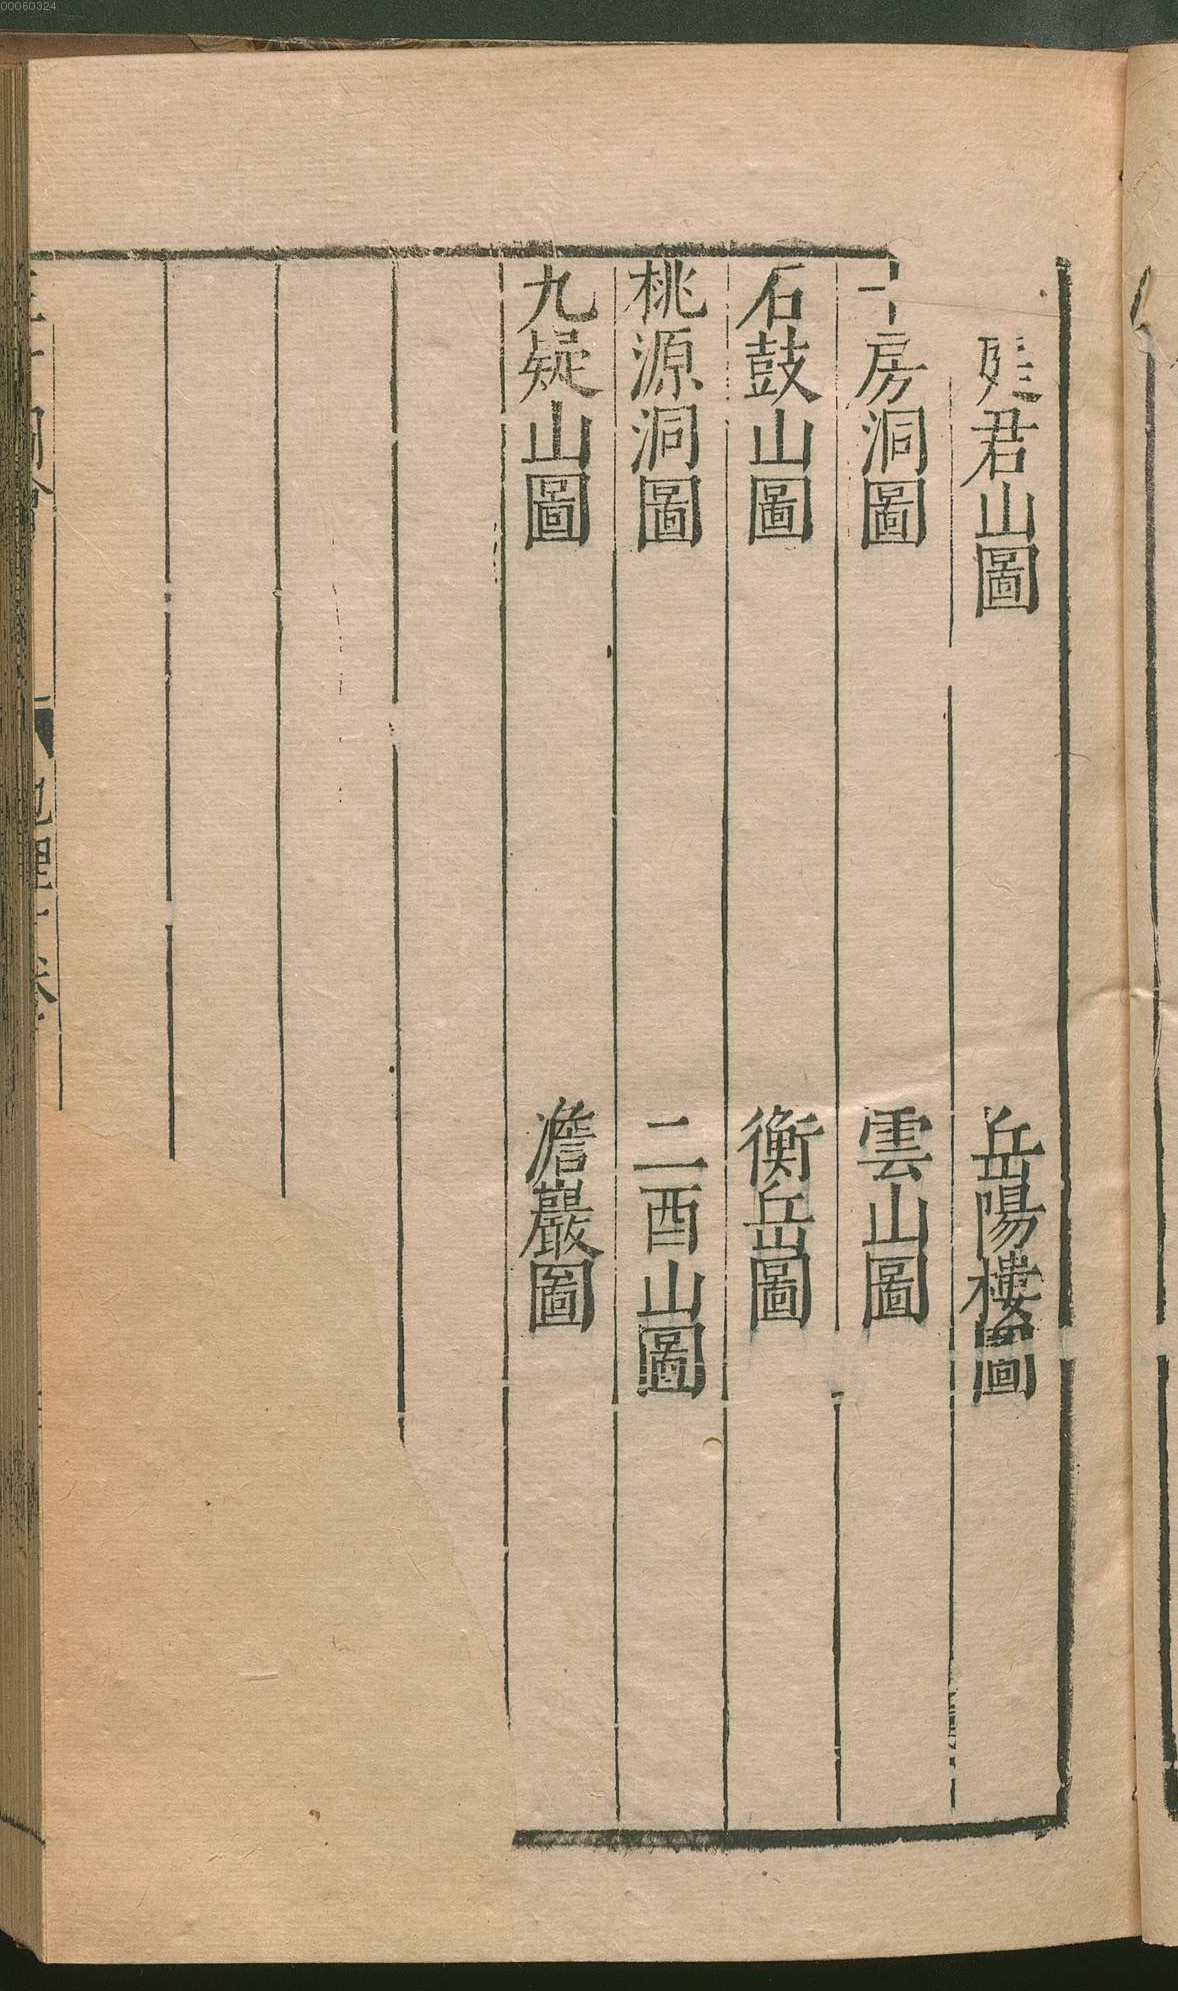 00060324
庭君山圖
岳陽樓圖
房洞圖
雲山圖
石鼓山圖
衡岳圖
桃源洞圖
二酉山圖
九疑山圖
澹巖圖
地理十卷